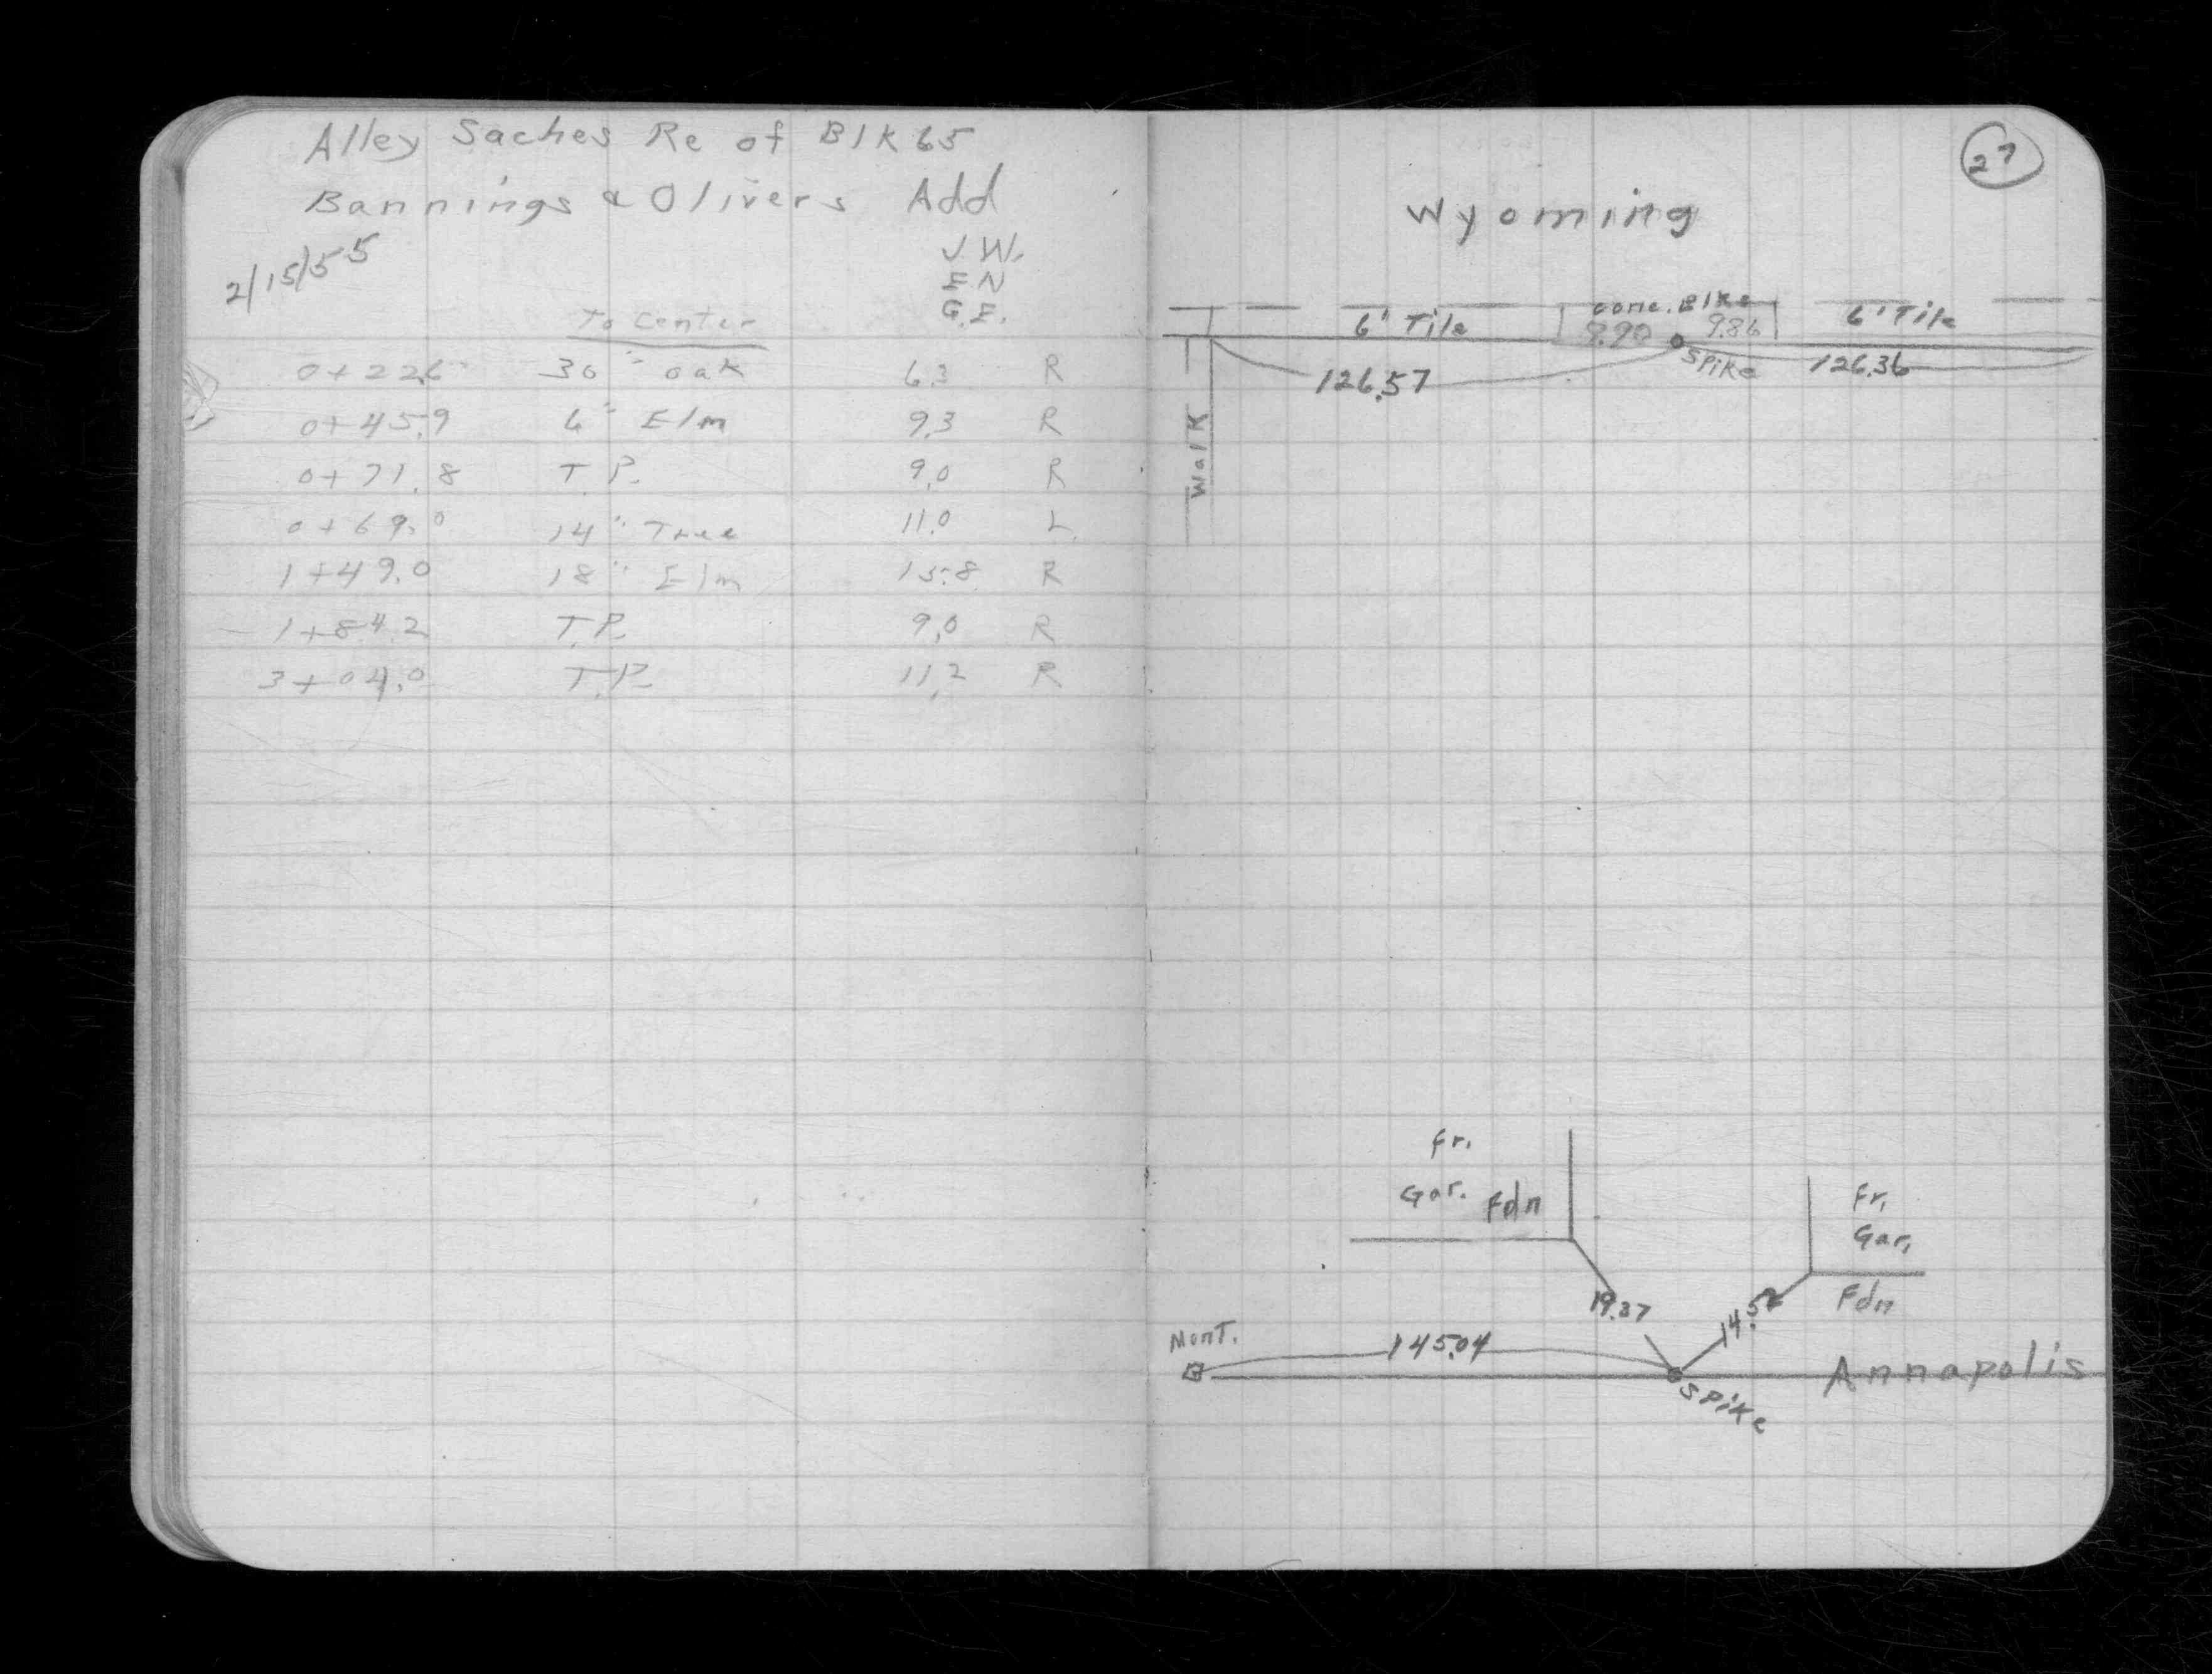 Alley Saches Re of Blk 65
Bannings & Olivers Add
2/15/55
J.W.
E N
G.E.
To Center
0+22.6 30" oak 6.3 R
0+45.9 6" Elm 9.3 R
0+71.8 T.P. 9.0 R
0+69.0 14" Tree 11.0 L
1+49.0 18" Elm 15.8 R
1+84.2 T.P. 9.0 R
3+04.0 T.P. 11.2 R
27
Wyoming
6' Tile
conc. Blke
9.90 9.86
6' Tile
126.57
Spike
126.36
Walk
Fr.
Gar. Fdn
Fr.
Gar.
Fdn
19.37
Mont.
145.04
Spike
Annapolis